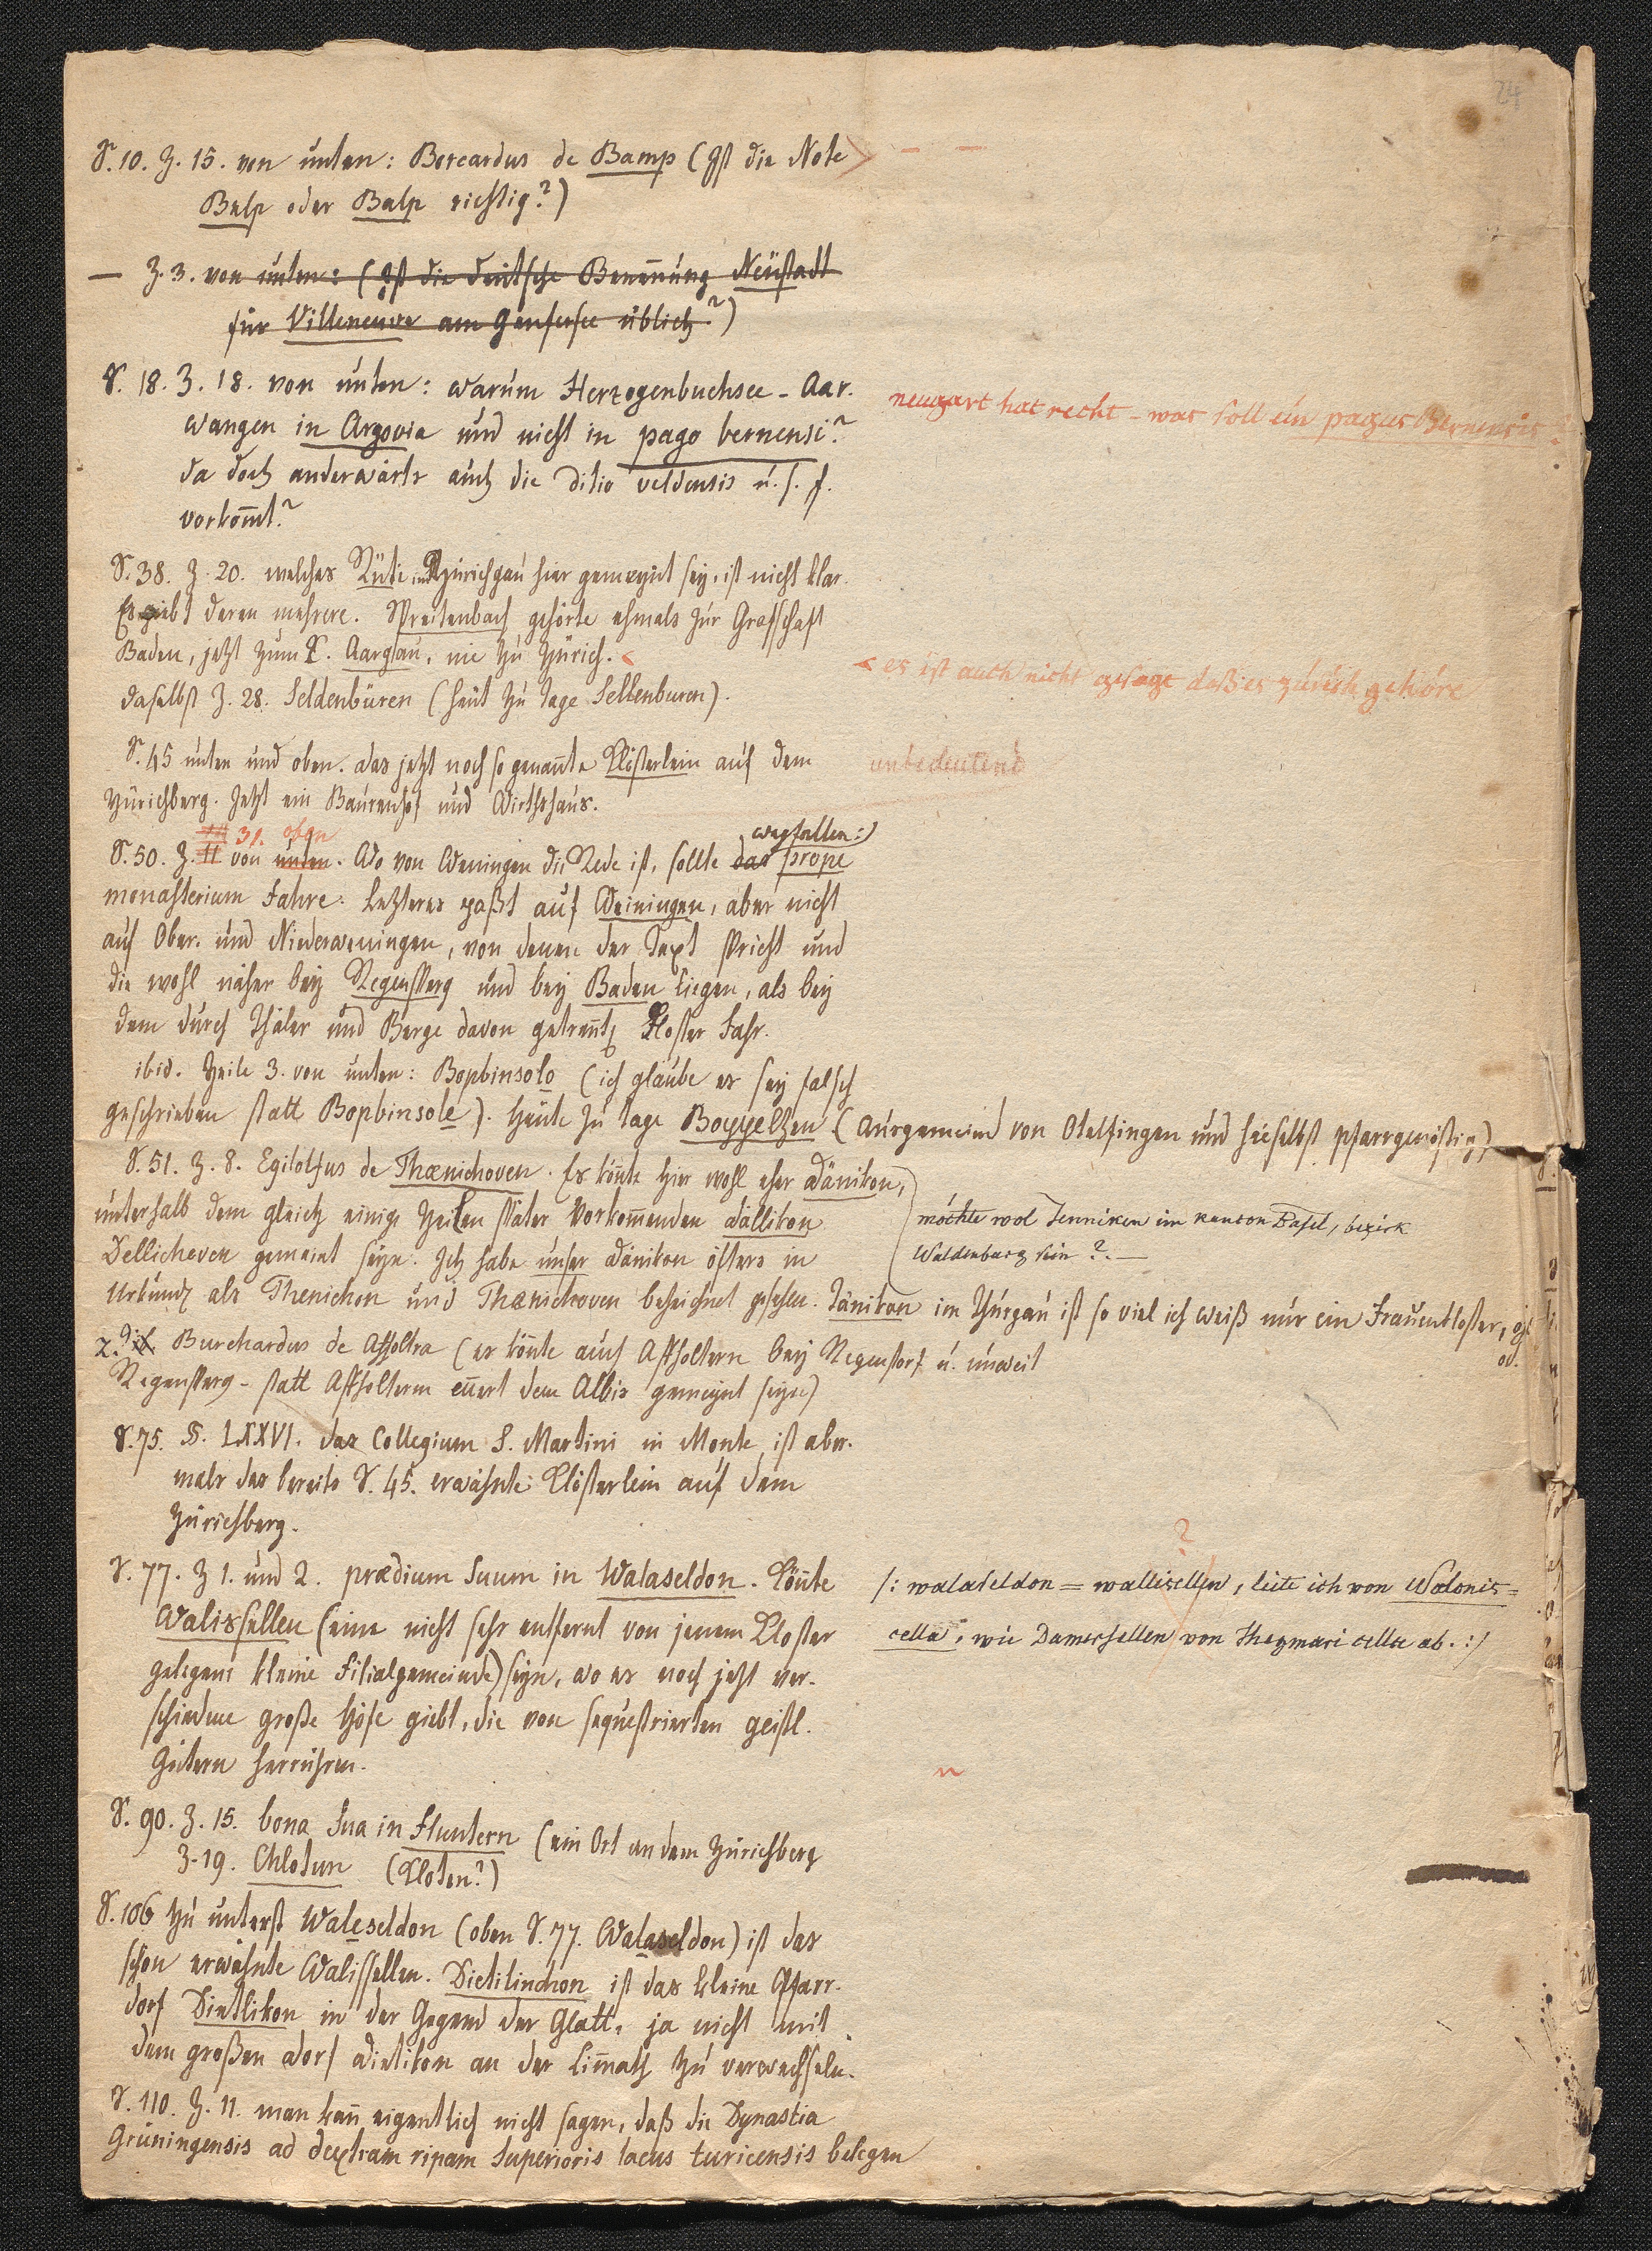 24
S. 10. Z. 15. von unten: Borcardus de Bamp (Ist die Note
Belp oder Balp richtig?)
— Z. 3. von unten: (Ist die deutsche Benennung Neustadt
für Villeneuve am Genfersee üblich?)
S. 18. Z. 18. von unten: warum Herzogenbuchsee - Aar-
wangen in Argovia und nicht in pago bernensi?
da doch anderwärts auch die ditio veldensis u. s. f.
vorkom̄t?
neugart hat recht – was soll ein pagus Bernensis.
S. 38. Z. 20. welches Rüti im Zürichgau hier gemeynt sey, ist nicht klar.
Es giebt deren mehrere. Spreitenbach gehörte ehmals zur Grafschaft
Baden, jetzt zum K. Aargau, nie zu Zürich.
< es ist auch nicht gesagt daß es zürich gehöre
daselbst Z. 28. Seldenbüren (heut zu tage Sellenburen).
S. 45 unten und oben. das jetzt noch so genan̄te Klösterlein auf dem
unbedeutend
Zürichberg. Jetzt ein Baurenhof und Wirthshaus.
31. oben
wegfallen:)
S. 50. Z. 11 von unten. Wo von Weningen die Rede ist, sollte das prope
monasterium Fahre: Letzteres paßt auf Weiningen, aber nicht
auf Ober- und Niederweningen, von denen der Text spricht und
die wohl näher bey Regensperg und bey Baden liegen, als bey
dem durch Thäler und Berge davon getren̄t Kloster Fahr.
ibid. Zeile 3. von unten: Bopbinsolo (ich glaube es sey falsch
geschrieben statt Bopbinsole). Heute zu tage Boppelsen (Aussgemeind von Otelfingen und hieselbst pfarrgenössig)
S. 51. Z. 8. Egilolfus de Thænichoven. Es kön̄te hier wohl eher Dänikon,
unterhalb dem gleich einige Zeilen später vorkom̄enden Dällikon
Dellichoven gemeint seyn. Ich habe unser Dänikon öfters in
möchte wol Tenniken im kanton Basel, bezirk
Waldenburg sein?. —
Urkund als Thenichon und Thænichoven bezeichnet gesehen. Tänikon im Thurgau ist so viel ich weiß nur ein Frauenkloster,
Burchardus de Affoltra (es kön̄te auch Affholtern bey Regenstorf u. unweit
Regensperg - statt Affholterm en̄ert dem Albis gemeynt seyn)
S. 75. §. LXXVI. das Collegium S. Martini in Monte ist aber-
mals das bereits S. 45. erwähnte Klösterlein auf dem
Zürichberg.
S. 77. Z 1. und 2. prædium suum in Walaseldon. Kön̄te
Walissellen (eine nicht sehr entfernt von jenem Kloster
gelegene kleine Filialgemeinde) seyn, wo es noch jetzt ver-
schiedene große Höfe giebt, die von sequestrierten geistl.
Gütern herrühren.
?
/: walaseldon = wallisellen, leite ich von Walonis=
cella, wie Damersellen von Thagmari cella ab. :/
S. 90. Z. 15. bona sua in Fluntern (ein Ort an dem Zürichberg
Z. 19. Chlotun (Kloten?)
S. 106 zu unterst Waleseldon (oben S. 77. Walaseldon) ist das
schon erwähnte Walissellen. Dietilinchon ist das kleine Pfarr-
dorf Dietlikon in der Gegend der Glatt, ja nicht mit
dem großen Dorf Dietikon an der Lim̄ath zu verwechseln.
S. 110. Z. 11. man kan̄ eigentlich nicht sagen, daß die Dynastia
Grüningensis ad dextram ripam superioris lacus turicensis belegen